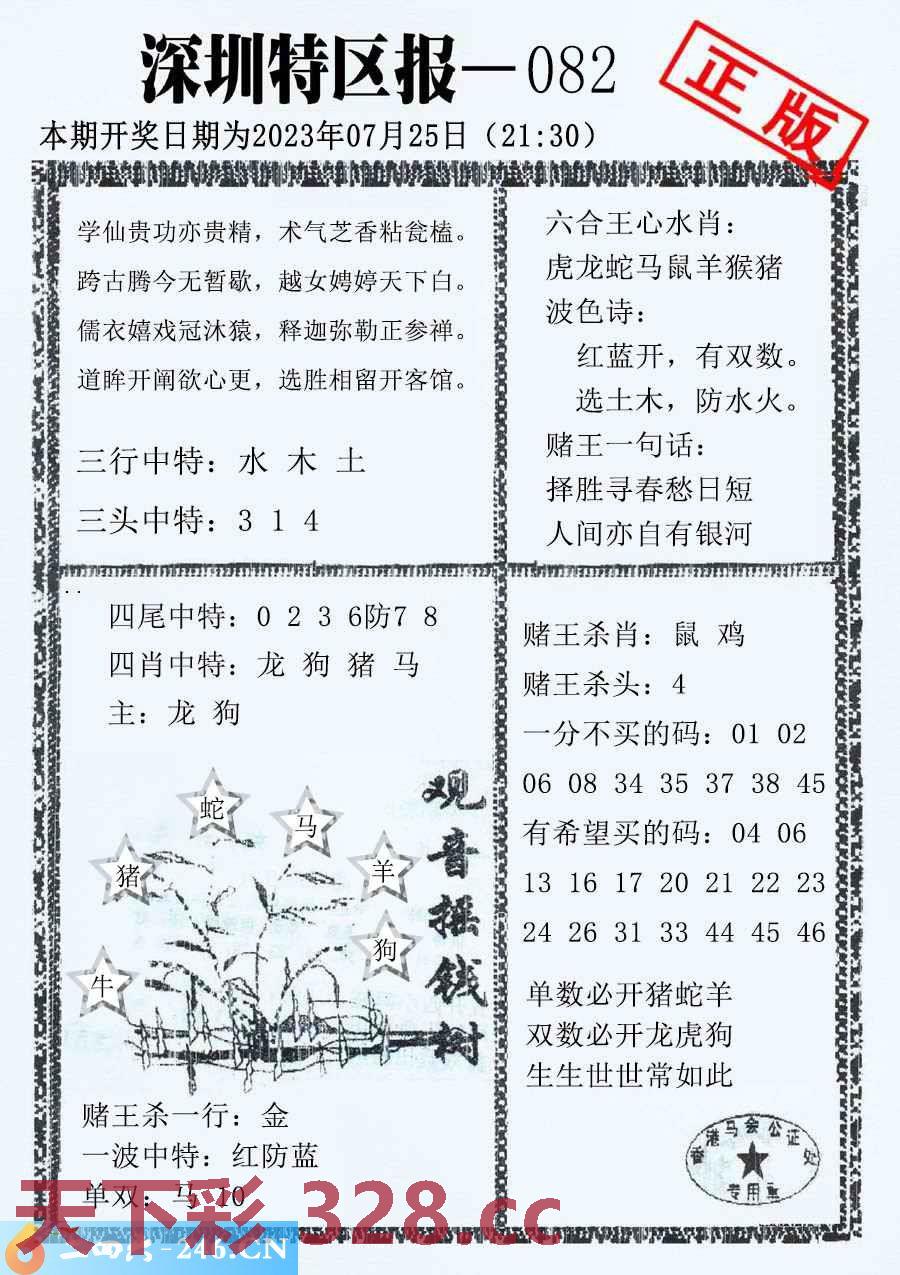 深圳特区报—082
正版
本期开奖日期为2023年07月25日（21:30）
学仙贵功亦贵精，术气芝香粘瓮榼。
跨古腾今无暂歇，越女娉婷天下白。
儒衣嬉戏冠沐猿，释迦弥勒正参禅。
道眸开阐欲心更，选胜相留开客馆。
三行中特：水 木 土
三头中特：3 1 4
六合王心水肖：
虎龙蛇马鼠羊猴猪
波色诗：
红蓝开，有双数。
选土木，防水火。
赌王一句话：
择胜寻春愁日短
人间亦自有银河
四尾中特：0 2 3 6防7 8
四肖中特：龙 狗 猪 马
主：龙 狗
蛇
马
猪
羊
狗
牛
观音摇钱树
赌王杀一行：金
一波中特：红防蓝
单双：马 10
赌王杀肖：鼠 鸡
赌王杀头：4
一分不买的码：01 02
06 08 34 35 37 38 45
有希望买的码：04 06
13 16 17 20 21 22 23
24 26 31 33 44 45 46
单数必开猪蛇羊
双数必开龙虎狗
生生世世常如此
香港马会公证处
专用章
天下彩 328.cc
-246.CN